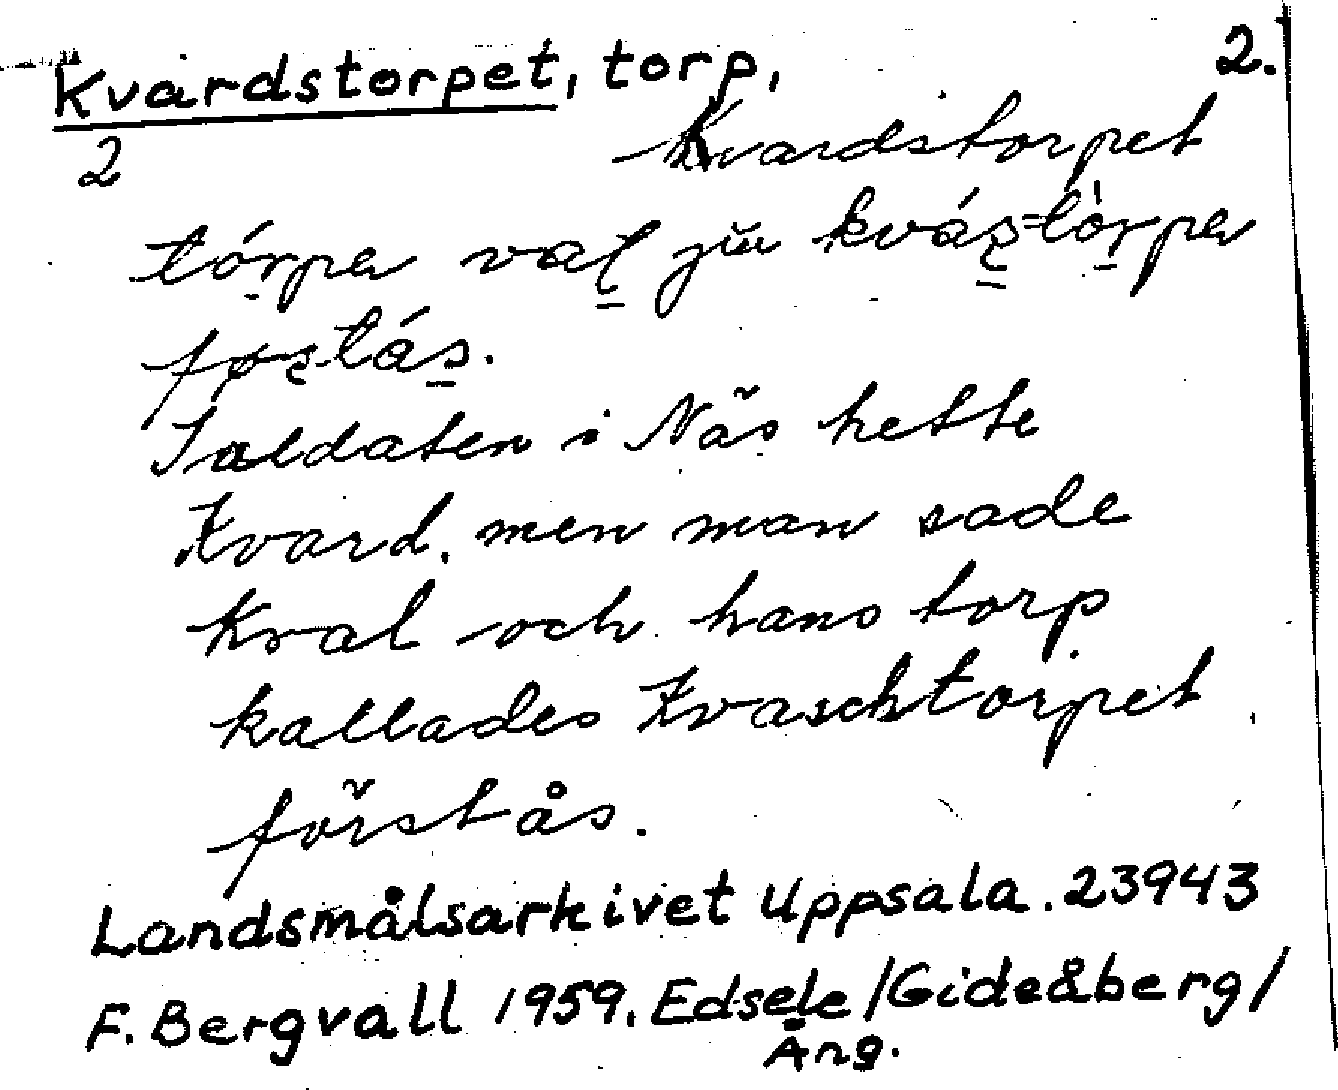 Kvardstorpet, torp, 2.
2 Kvardstorpet
kvástòrpa
fostás.
Soldaten i Näs hette
Kvard, men man sade
Kval och hans torp
kallades Kvaschtorpet
förstås.
Landsmålsarkivet Uppsala. 23943
F. Bergvall 1959. Edsele /Gideåberg/
Äng.